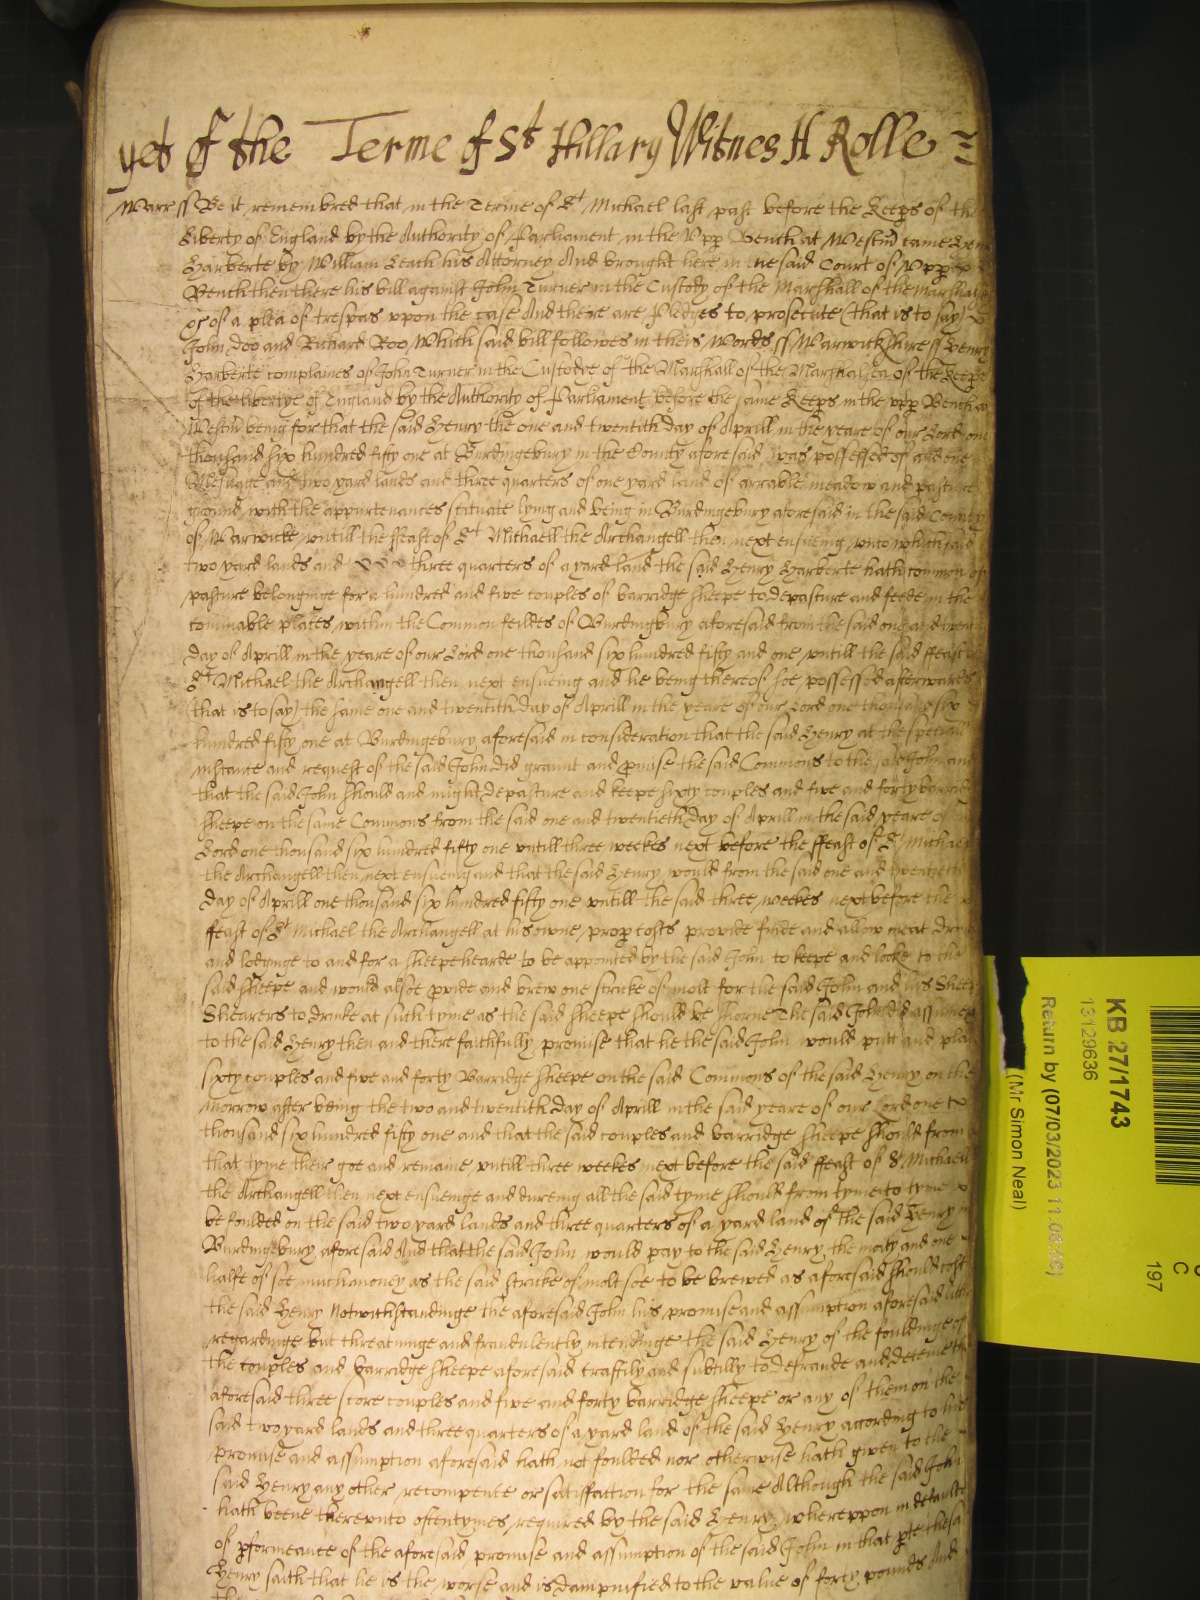 yet of the Terme of St Hillary Witnes H Rolle
Warr ss Be it remembred that in the Terme of St Michael last past before the Keeps of the
Liberty of England by the Authority of Parliament in the Upp Bench at Westm came Henry
Harberte by William Leach his Attorney And brought here in the said Court of Upp
Bench then there his bill against John Turner in the Custody of the Marshall of the Marshals
of a plea of trespas uppon the case And there are Pledges to prosecute (that is to say)
John Doo and Richard Roo Which said bill followes in theis Words ss Warwickshire ss Henry
Harberte complaines of John Turner in the Custodye of the Marshall of the Marshalsea of the Keeps
of the libertye of England by the Authority of Parliament before the same Keeps in the upp Bench at
Westm being for that the said Henry the one and twentith day of Aprill in the yeare of our Lord one
thousand six hundred fifty one at Burdingebury in the County aforesaid was possessed of and one
Mesuage and two yard lands and three quarters of one yard land of arrable meadow and pasture
ground with the appurtenances scituate lying and being in Burdingebury aforesaid in the said County
of Warwicke untill the ffeast of St Michaell the Archangell then next ensueing unto which said
two yard lands and three quarters of a yard land the said Henry Harberte hath common of
pasture belonginge for a hundred and five couples of barridge sheepe to depasture and feede in the
comunable places within the Common feildes of Burdingbury aforesaid from the said one and twen
day of Aprill in the yeare of our Lord one thousand six hundred fifty and one untill the said ffeast
St Michael the Archangell then next ensueing and he being thereof soe possessed afterwards
(that is to say) the same one and twentith day of Aprill in the yeare of our Lord one thousand six
hundred fifty one at Burdingebury aforesaid in consideration that the said Henry at the speciall
instance and request of the said John did graunt and pmise the said Commons to the said John and
that the said John should and might depasture and keepe sixty couples and five and forty barridge
sheepe on the same Commons from the said one and twentieth day of Aprill in the said yeare of
Lord one thousand six hundred fifty one untill three weekes next before the ffeast of St Michael
the Archangell then next ensueing and that the said Henry would from the said one and twentieth
day of Aprill one thousand six hundred fifty one untill the said three weekes next before the
feast of St Michael the Archangell at his owne prop costs provide finde and allow meat drin
and lodginge to and for a sheepehearde to be appointed by the said John to keepe and looke to the
said sheepe and would alsoe pvide and brew one strike of molt for the said John and his Sheep
Shearers to drinke at such tyme as the said sheepe should be shorne The said John did assume
to the said Henry then and there faithfully promise that he the said John would putt and place
sixty couples and five and forty Barridge sheepe on the said Commons of the said Henry on the
morrow after being the two and twentith day of Aprill in the said yeare of our Lord one
thousand six hundred fifty one and that the said couples and barridge sheepe should from
that tyme their goe and remaine untill three weekes next before the said ffeast of St Michaell
the Archangell then next ensueinge and dureing all the said tyme should from tyme to tyme
be foulded on the said two yard lands and three quarters of a yard land of the said Henry in
Burdingebury aforesaid And that the said John would pay to the said Henry the moity and one
halfe of soe much money as the said strike of molt soe to be brewed as aforesaid should cost
the said Henry Notwithstandinge the aforesaid John his promise and assumption aforesaid little
regardinge but threatninge and fraudulently intendinge the said Henry of the fouldinge of
the couples and barridge sheepe aforesaid craftily and subtilly to defraude and deceive the
aforesaid three score couples and five and forty barridge sheepe or any of them on the
said two yard lands and three quarters of a yard land of the said Henry according to his
promise and assumption aforesaid hath not foulded nor otherwise hath given to the
said Henry any other recompence or satisfaction for the same Although the said John
hath beene thereunto oftentymes required by the said Henry whereuppon in defaulte
of pformeance of the aforesaid promise and assumption of the said John in that pte the sa
Henry saith that he is the worse and is dampnified to the value of forty pounds And
KB 27/1743
13129636
Return by (07/03/2023
(Mr Simon Neal)
C
197